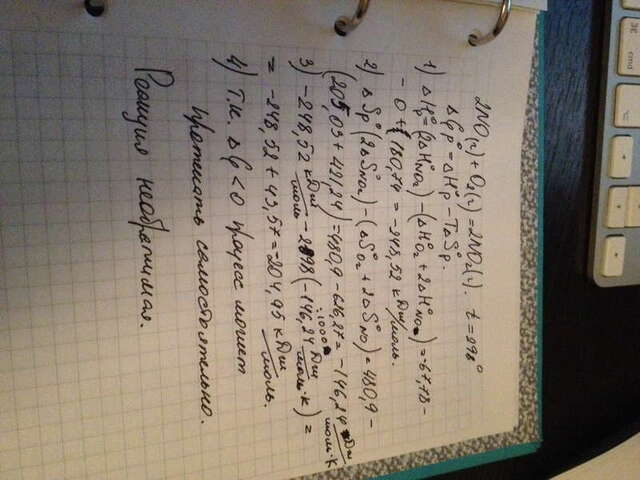 2NO(г) + O₂(г) = 2NO₂(г). t = 298°
ΔG°р = ΔH°р - TΔS°р.
1) ΔH°р = (2ΔH°NO₂) - (ΔH°O₂ + 2ΔH°NO) = -67,78 -
- 0 + 180,74 = -248,52 кДж/моль.
2) ΔS°р (2ΔS°NO₂) - (ΔS°O₂ + 2ΔS°NO) = 480,9 -
(205,03 + 421,24) = 480,9 - 626,27 = -146,24 Дж/моль·К
3) -248,52 кДж/моль - 298 (-146,24 Дж/моль·К) =
:1000
= -248,52 + 43,57 = 204,95 кДж/моль.
4) Т.к. ΔG < 0 процесс может
протекать самостоятельно.
Реакция необратимая.
cmd